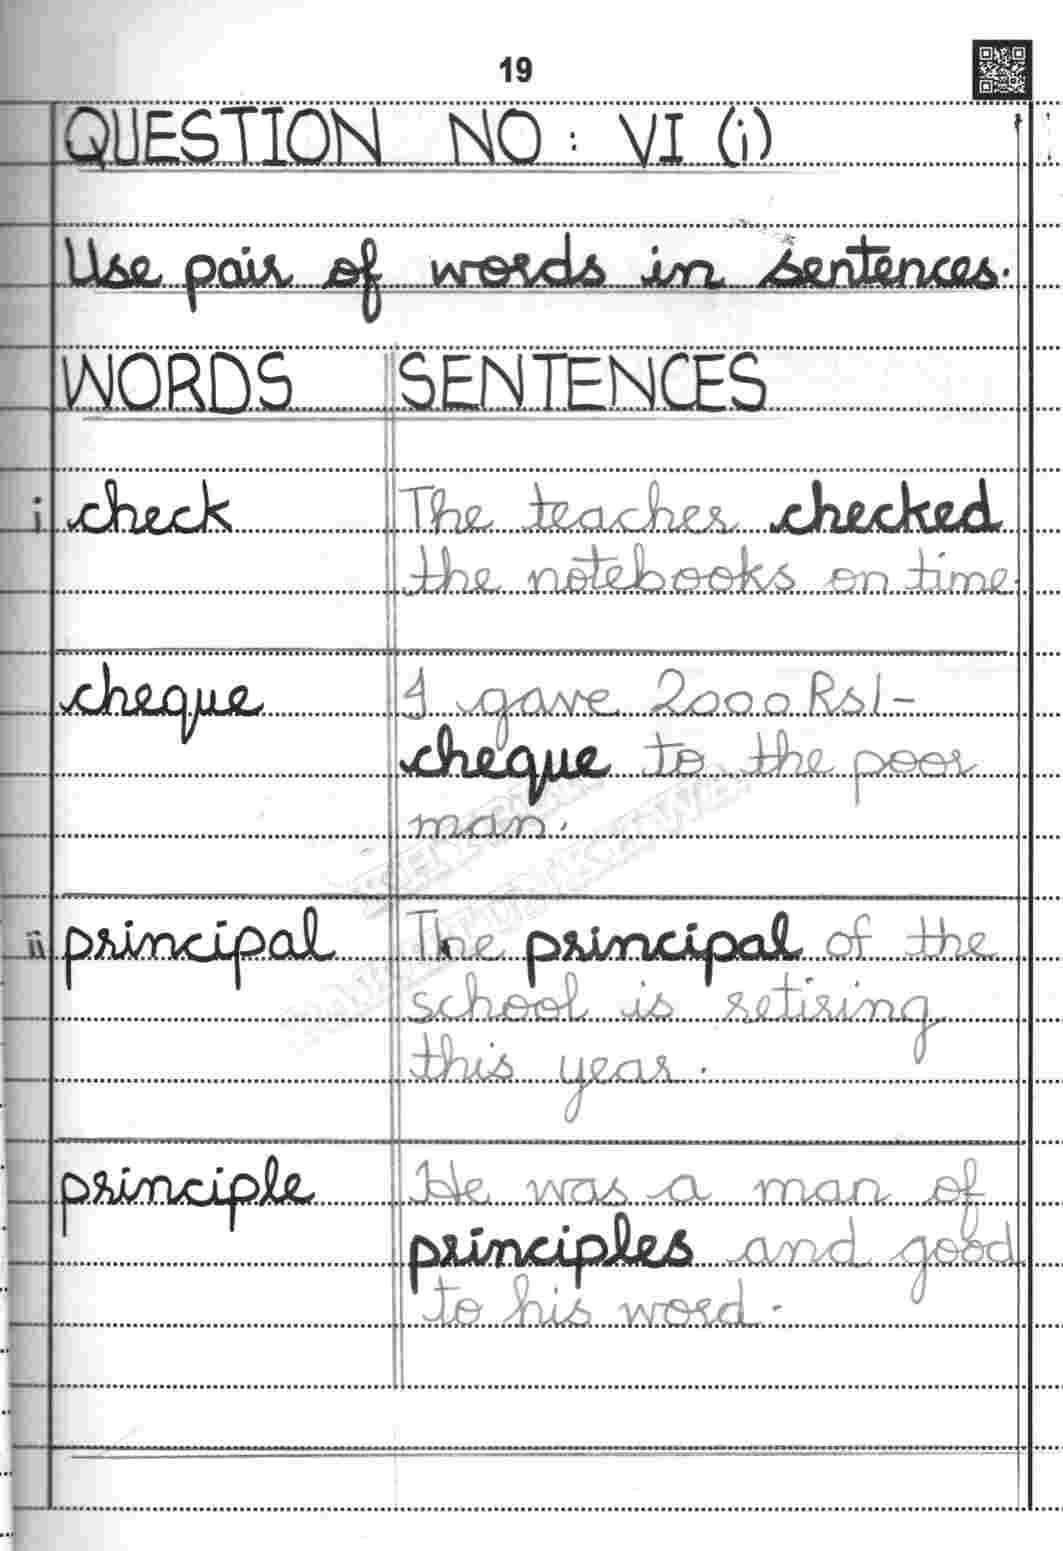 19
QUESTION NO: VI (i)
Use pair of words in sentences.
WORDS SENTENCES
i check The teacher checked
the notebooks on time.
cheque I gave 2000 Rs/-
cheque to the poor
man.
ii principal The principal of the
school is retiring
this year.
principle He was a man of
principles and good
to his word.